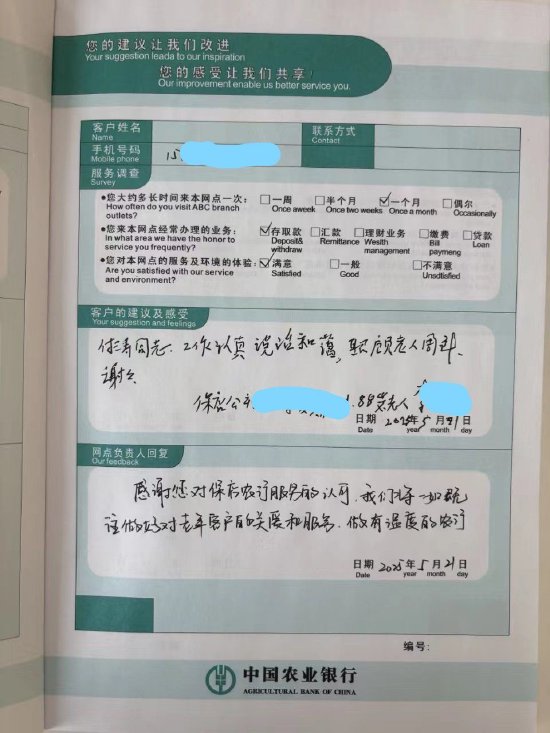 您的建议让我们改进
Your suggestion leada to our inspiration
您的感受让我们共享!
Our improvement enable us better service you.
客户姓名
Name
联系方式
Contact
手机号码
Mobile phone
15
服务调查
Survey
●您大约多长时间来本网点一次: □一周 □半个月 ☑一个月 □偶尔
How often do you visit ABC branch outlets? Once aweek Once two weeks Once a month Occasionally
●您来本网点经常办理的业务: ☑存取款 □汇款 □理财业务 □缴费 □贷款
In what area we have the honor to service you frequently? Deposit& withdraw Remittance Wealth management Bill paymeng Loan
●您对本网点的服务及环境的体验: ☑满意 □一般 □不满意
Are you satisfied with our service and environment? Satisfied Good Unsdtisfied
客户的建议及感受
Your suggestion and feelings
同志、工作认真 说话和蔼, 照顾老人周到、
谢谢
保店公 88岁老人
日期 2025年5月21日
Date year month day
网点负责人回复
Our feedback
感谢您对保店农行服务的认可,我们将一如既
往做好对老年客户的关爱和服务,做有温度的农行
日期 2025年5月21日
Date year month day
编号:
中国农业银行
AGRICULTURAL BANK OF CHINA